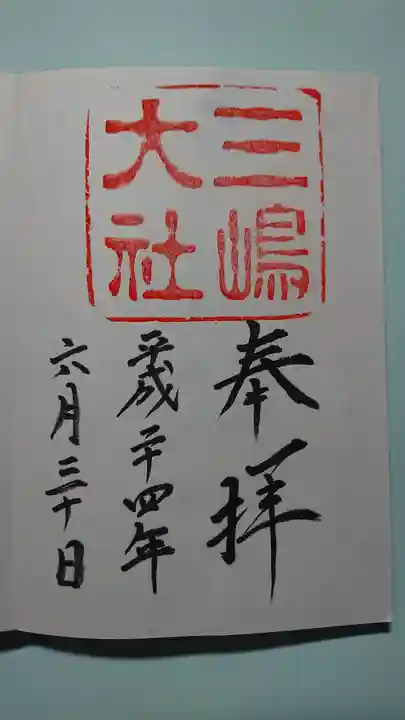 三嶋
大社
奉拝
平成二十四年
六月三十日